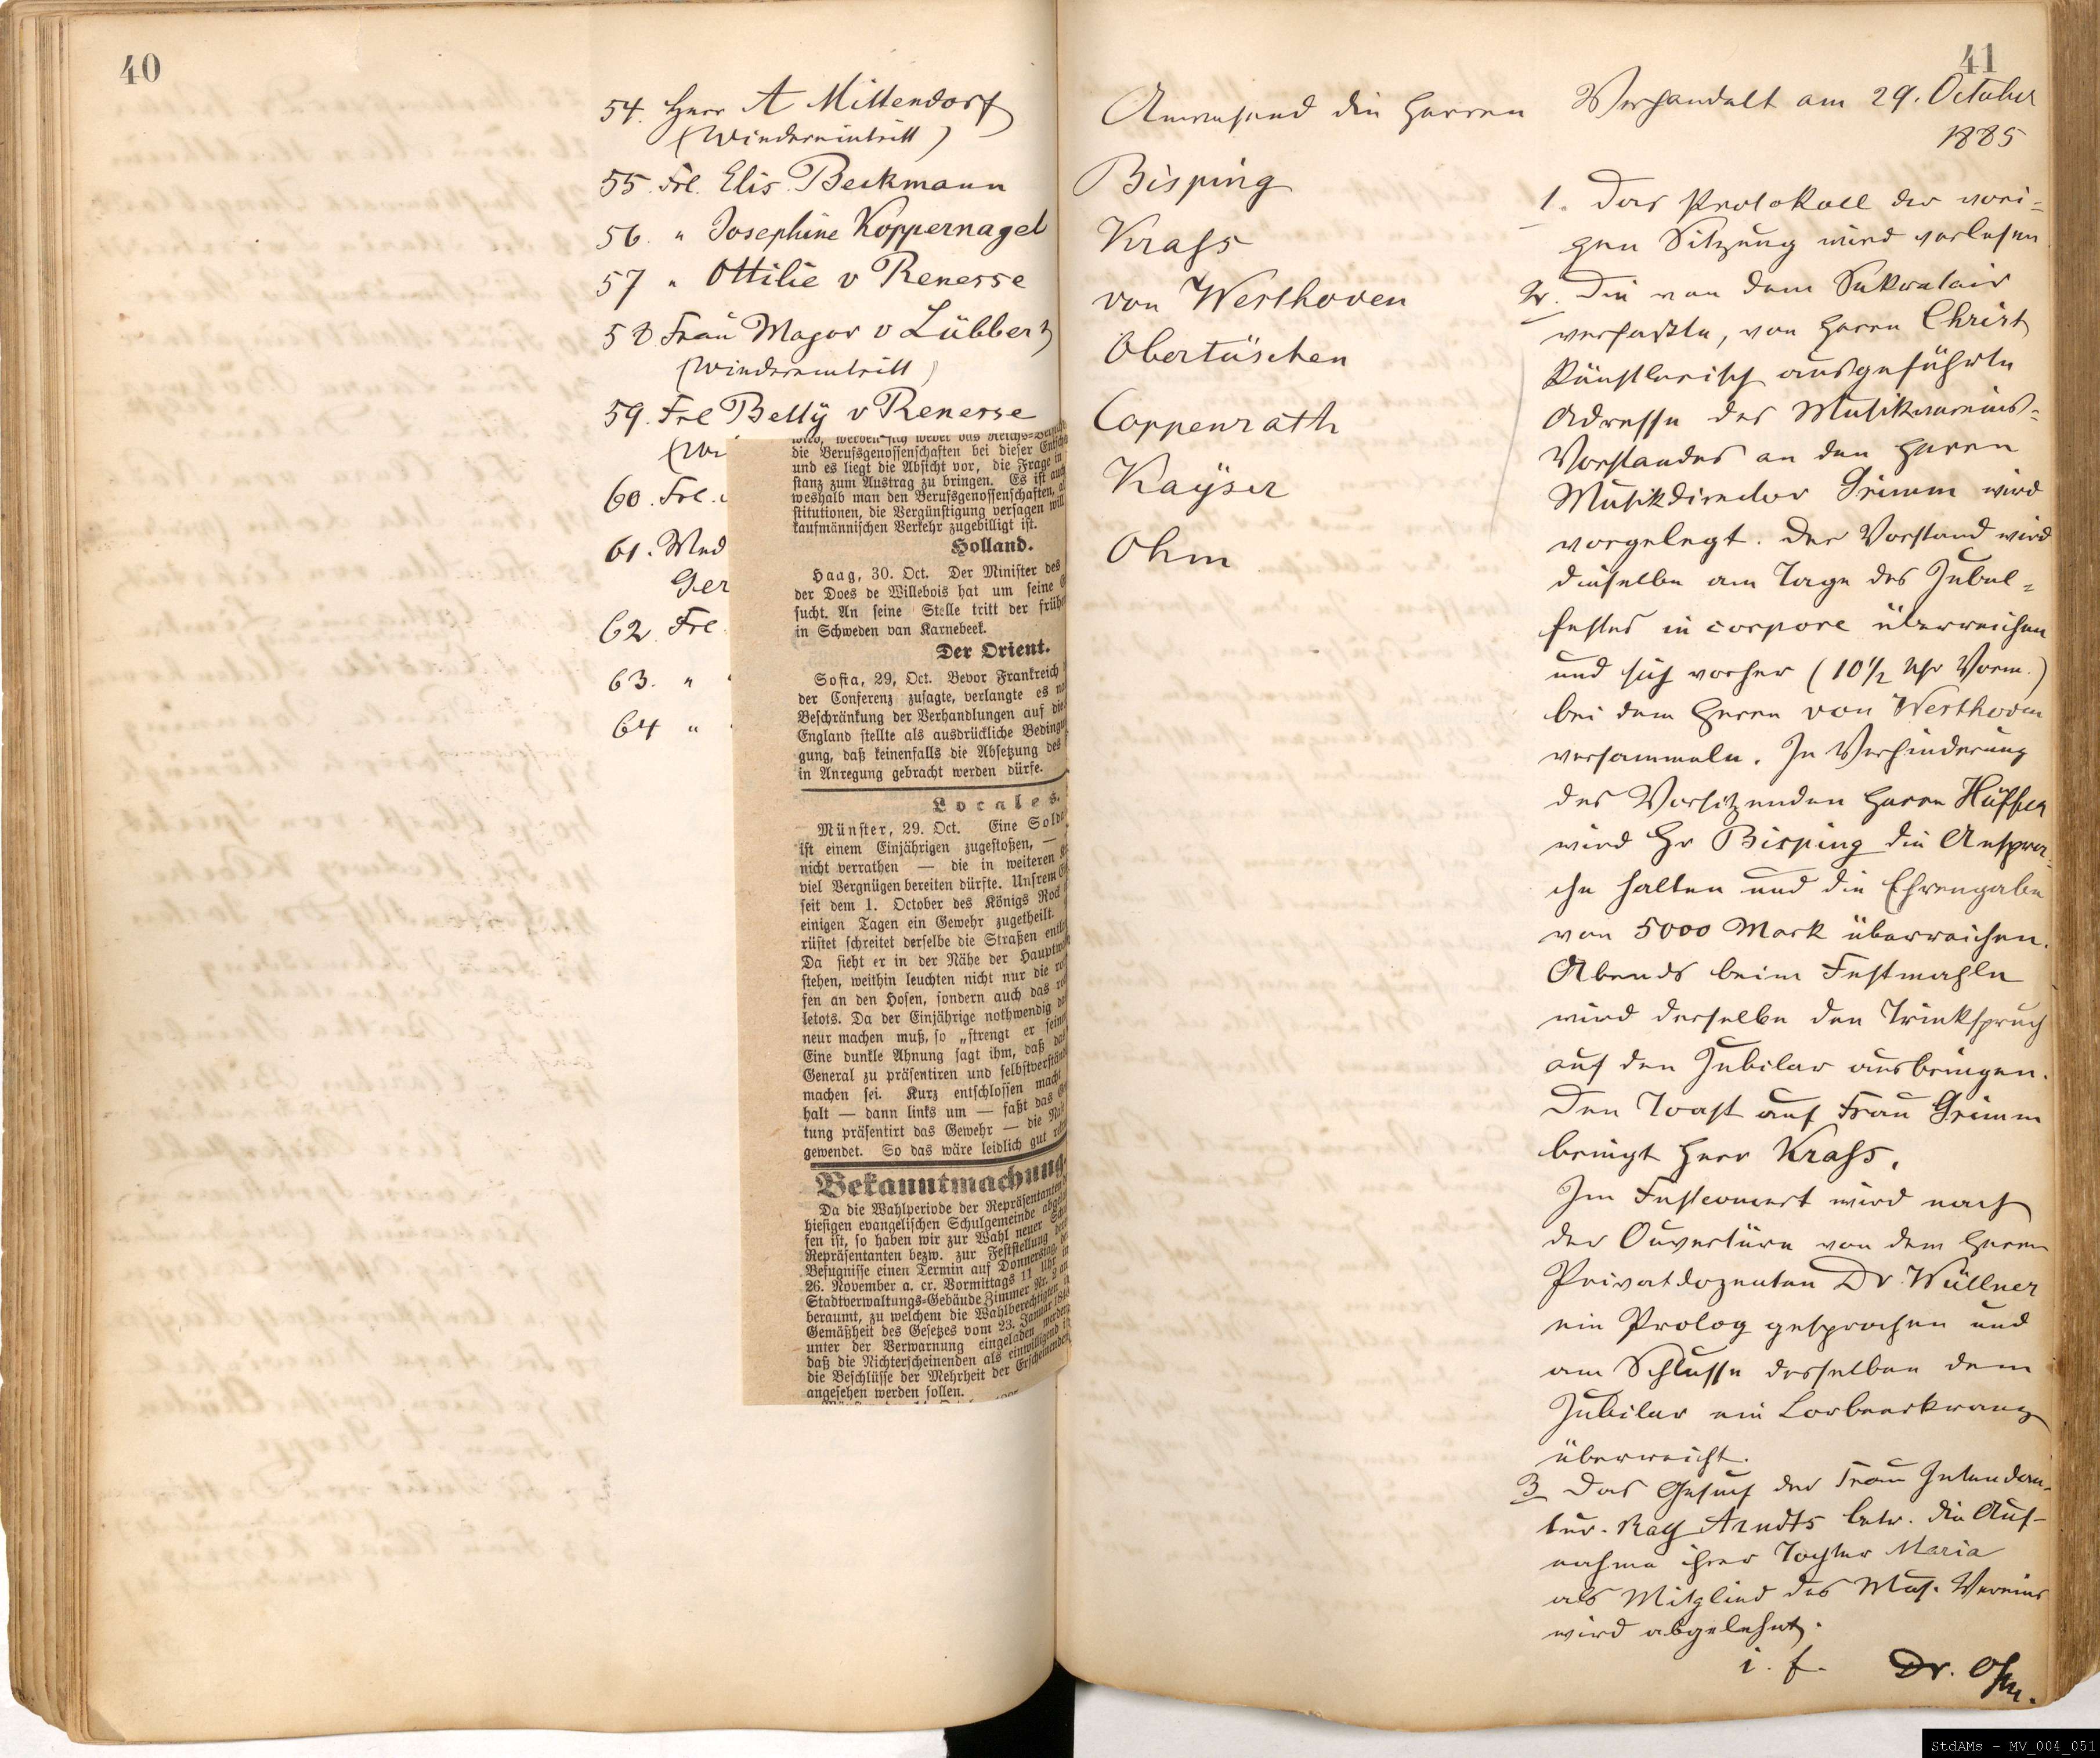 40
54. Herr A Mittendorf
(Wiedereintritt)
55. Frl. Elis. Beckmann
56. " Josephine Koppernagel
57 " Ottilie v Renesse
58 Frau Major v Lübbers
(Wiedereintritt)
59. Frl Betty v Renesse
(Wi
60. Frl.
61. Med
Ger
62. Frl
63. "
64 "
die Berufsgenossenschaften bei dieser
und es liegt die Absicht vor, die Frage in
stanz zum Austrag zu bringen. Es ist auch
weshalb man den Berufsgenossenschaften,
stitutionen, die Vergünstigung versagen will
kaufmännischen Verkehr zugebilligt ist.
Holland.
Haag, 30. Oct. Der Minister des
der Does de Willebois hat um seine
sucht. An seine Stelle tritt der früh
in Schweden van Karnebeek.
Der Orient.
Sofia, 29, Oct. Bevor Frankreich
der Conferenz zusagte, verlangte es
Beschränkung der Verhandlungen auf die
England stellte als ausdrückliche Beding
gung, daß keinenfalls die Absetzung des
in Anregung gebracht werden dürfe.
Locales.
Münster, 29. Oct. Eine Solda
ist einem Einjährigen zugestoßen, —
nicht verrathen — die in weiteren
viel Vergnügen bereiten dürfte. Unsrem
seit dem 1. October des Königs Rock
einigen Tagen ein Gewehr zugetheilt.
rüstet schreitet derselbe die Straßen entla
Da sieht er in der Nähe der Hauptwa
stehen, weithin leuchten nicht nur die ro
fen an den Hosen, sondern auch das
letots. Da der Einjährige nothwendig
neur machen muß, so „strengt er seine
Eine dunkle Ahnung sagt ihm, daß
General zu präsentiren und selbstverständ
machen sei. Kurz entschlossen macht
halt — dann links um — faßt das
tung präsentirt das Gewehr — die
gewendet. So das wäre leidlich gut
Bekanntmachung.
Da die Wahlperiode der Repräsentanten
hiesigen evangelischen Schulgemeinde abgelau
fen ist, so haben wir zur Wahl neuer Schul
Repräsentanten bezw. zur Feststellung deren
Befugnisse einen Termin auf Donnerstag, den
26. November a. cr. Vormittags 11 Uhr im
Stadtverwaltungs-Gebäude Zimmer Nr. 2 an
beraumt, zu welchem die Wahlberechtigten in
Gemäßheit des Gesetzes vom 23. Januar 1846
unter der Verwarnung eingeladen werden,
daß die Nichterscheinenden als einwilligend in
die Beschlüsse der Mehrheit der Erscheinenden
angesehen werden sollen.
41
Anwesend die Herren
Bisping
Krass
von Westhoven
Obertüschen
Coppenrath
Kayser
Ohm
Verhandelt am 29. October
1885
1. Das Protokoll der vori=
gen Sitzung wird verlesen
2. Die von dem Sekretair
verfaßte, von Herrn Christ
künstlerisch ausgeführte
Adresse des Musikvereins=
Vorstandes an den Herrn
Musikdirector Grimm wird
vorgelegt. Der Vorstand wird
dieselbe am Tage des Jubel=
festes in corpore überreichen
und sich vorher (10½ Uhr Vorm.)
bei dem Herrn von Westhoven
versammeln. In Verhinderung
des Vorsitzenden Herrn Hüffer
wird Hr Bisping die Anspra=
che halten und die Ehrengabe
von 5000 Mark überreichen.
Abends beim Festmahle
wird derselbe den Trinkspruch
auf den Jubilar ausbringen.
Den Toast auf Frau Grimm
bringt Herr Krass.
Im Festconcert wird nach
der Ouvertüre von dem Herrn
Privatdozenten Dr. Wüllner
ein Prolog gesprochen und
am Schlusse desselben dem
Jubilar ein Lorbeerkranz
überreicht.
3 Das Gesuch der Frau Intendan=
tur-Rath Arndts betr. die Auf=
nahme ihrer Tochter Maria
als Mitglied des Mus. Vereins
wird abgelehnt.
i. f. Dr. Ohm.
StdAMs - MV_004_051